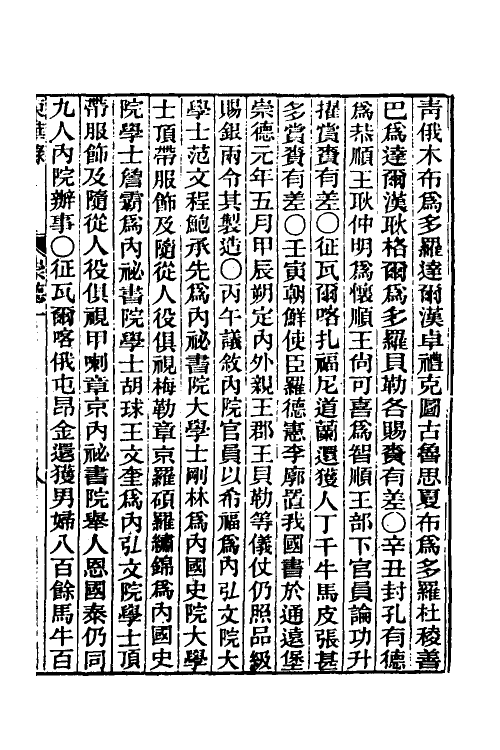 青俄木布爲多羅達爾漢卓禮克圖古魯思夏布爲多羅杜稜善
巴爲達爾漢耿格爾爲多羅貝勒各賜賚有差〇辛丑封孔有德
爲恭順王耿仲明爲懷順王尙可喜爲智順王部下官員論功升
擢賞賚有差〇征瓦爾喀扎福尼道蘭還獲人丁千牛馬皮張甚
多賞賚有差〇壬寅朝鮮使臣羅德憲李廓置我國書於通遠堡
崇德元年五月甲辰朔定內外親王郡王貝勒等儀仗仍照品級
賜銀兩令其製造〇丙午議敘內院官員以希福爲內弘文院大
學士范文程鮑承先爲內祕書院大學士剛林爲內國史院大學
士頂帶服飾及隨從人役俱視梅勒章京羅碩羅繡錦爲內國史
院學士詹霸爲內祕書院學士胡球王文奎爲內弘文院學士頂
帶服飾及隨從人役俱視甲喇章京內祕書院舉人恩國泰仍同
九人內院辦事〇征瓦爾喀俄屯昂金還獲男婦八百餘馬牛百
東華錄 崇德一 八